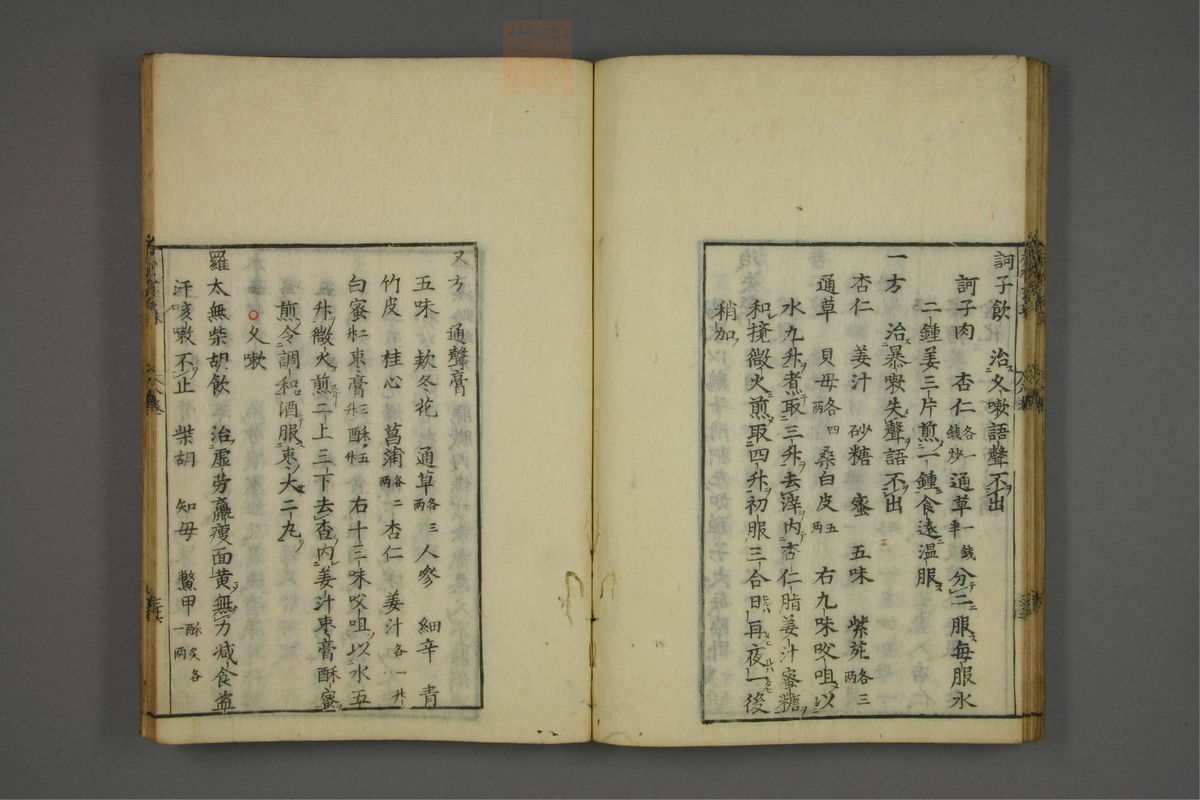 訶子飲　治久嗽語聲不出
訶子肉　杏仁各一錢炒　通草一錢半　分二服每服水
二鍾姜三片煎一鍾食遠温服
一方　治暴嗽失聲語不出
杏仁　姜汁　砂糖　蜜　五味　紫菀各三兩
通草　貝母各四兩　桑白皮五兩　右九味㕮咀以
水九升煮取三升去滓内杏仁脂姜汁蜜糖
和攪微火煎取四升初服三合日再夜一後
稍加
又方　通聲膏
五味　款冬花　通草各三兩　人參　細辛　青
竹皮　桂心　菖蒲各二兩　杏仁　姜汁各一升
白蜜二升　棗膏三升　酥五升　右十三味㕮咀以水五
升微火煎三上三下去査内姜汁棗膏酥蜜
煎令調和酒服棗大二丸
○久嗽
羅太無柴胡飲　治虚労羸瘦面黄無力減食盗
汗咳嗽不止　柴胡　知母　鱉甲酥炙各一兩